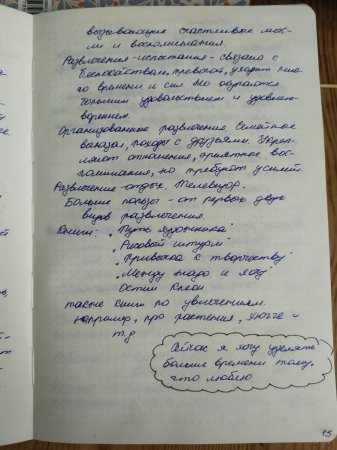 вызывающие счастливые мыс-
ли и воспоминания
Развлечения-испытания - связано с
беспокойством, тревогой, уходит мно-
го времени и сил. Но окупается
большим удовольствием и удовлет-
ворением.
Организованное развлечение. Семейные
выходы, походы с друзьями. Укреп-
ляют отношения, приятные вос-
поминания, но требуют усилий.
Развлечение-отдых. Телевизор.
Больше пользы - от первых двух
видов развлечения.
Книги: „Путь художника"
„Рисовый штурм"
„Привычка к творчеству"
„Между надо и хочу"
Остин Клеон
также книги по увлечениям.
Например, про растения, хюгге и
т.д
Сейчас я хочу уделять
больше времени тому,
что люблю
15